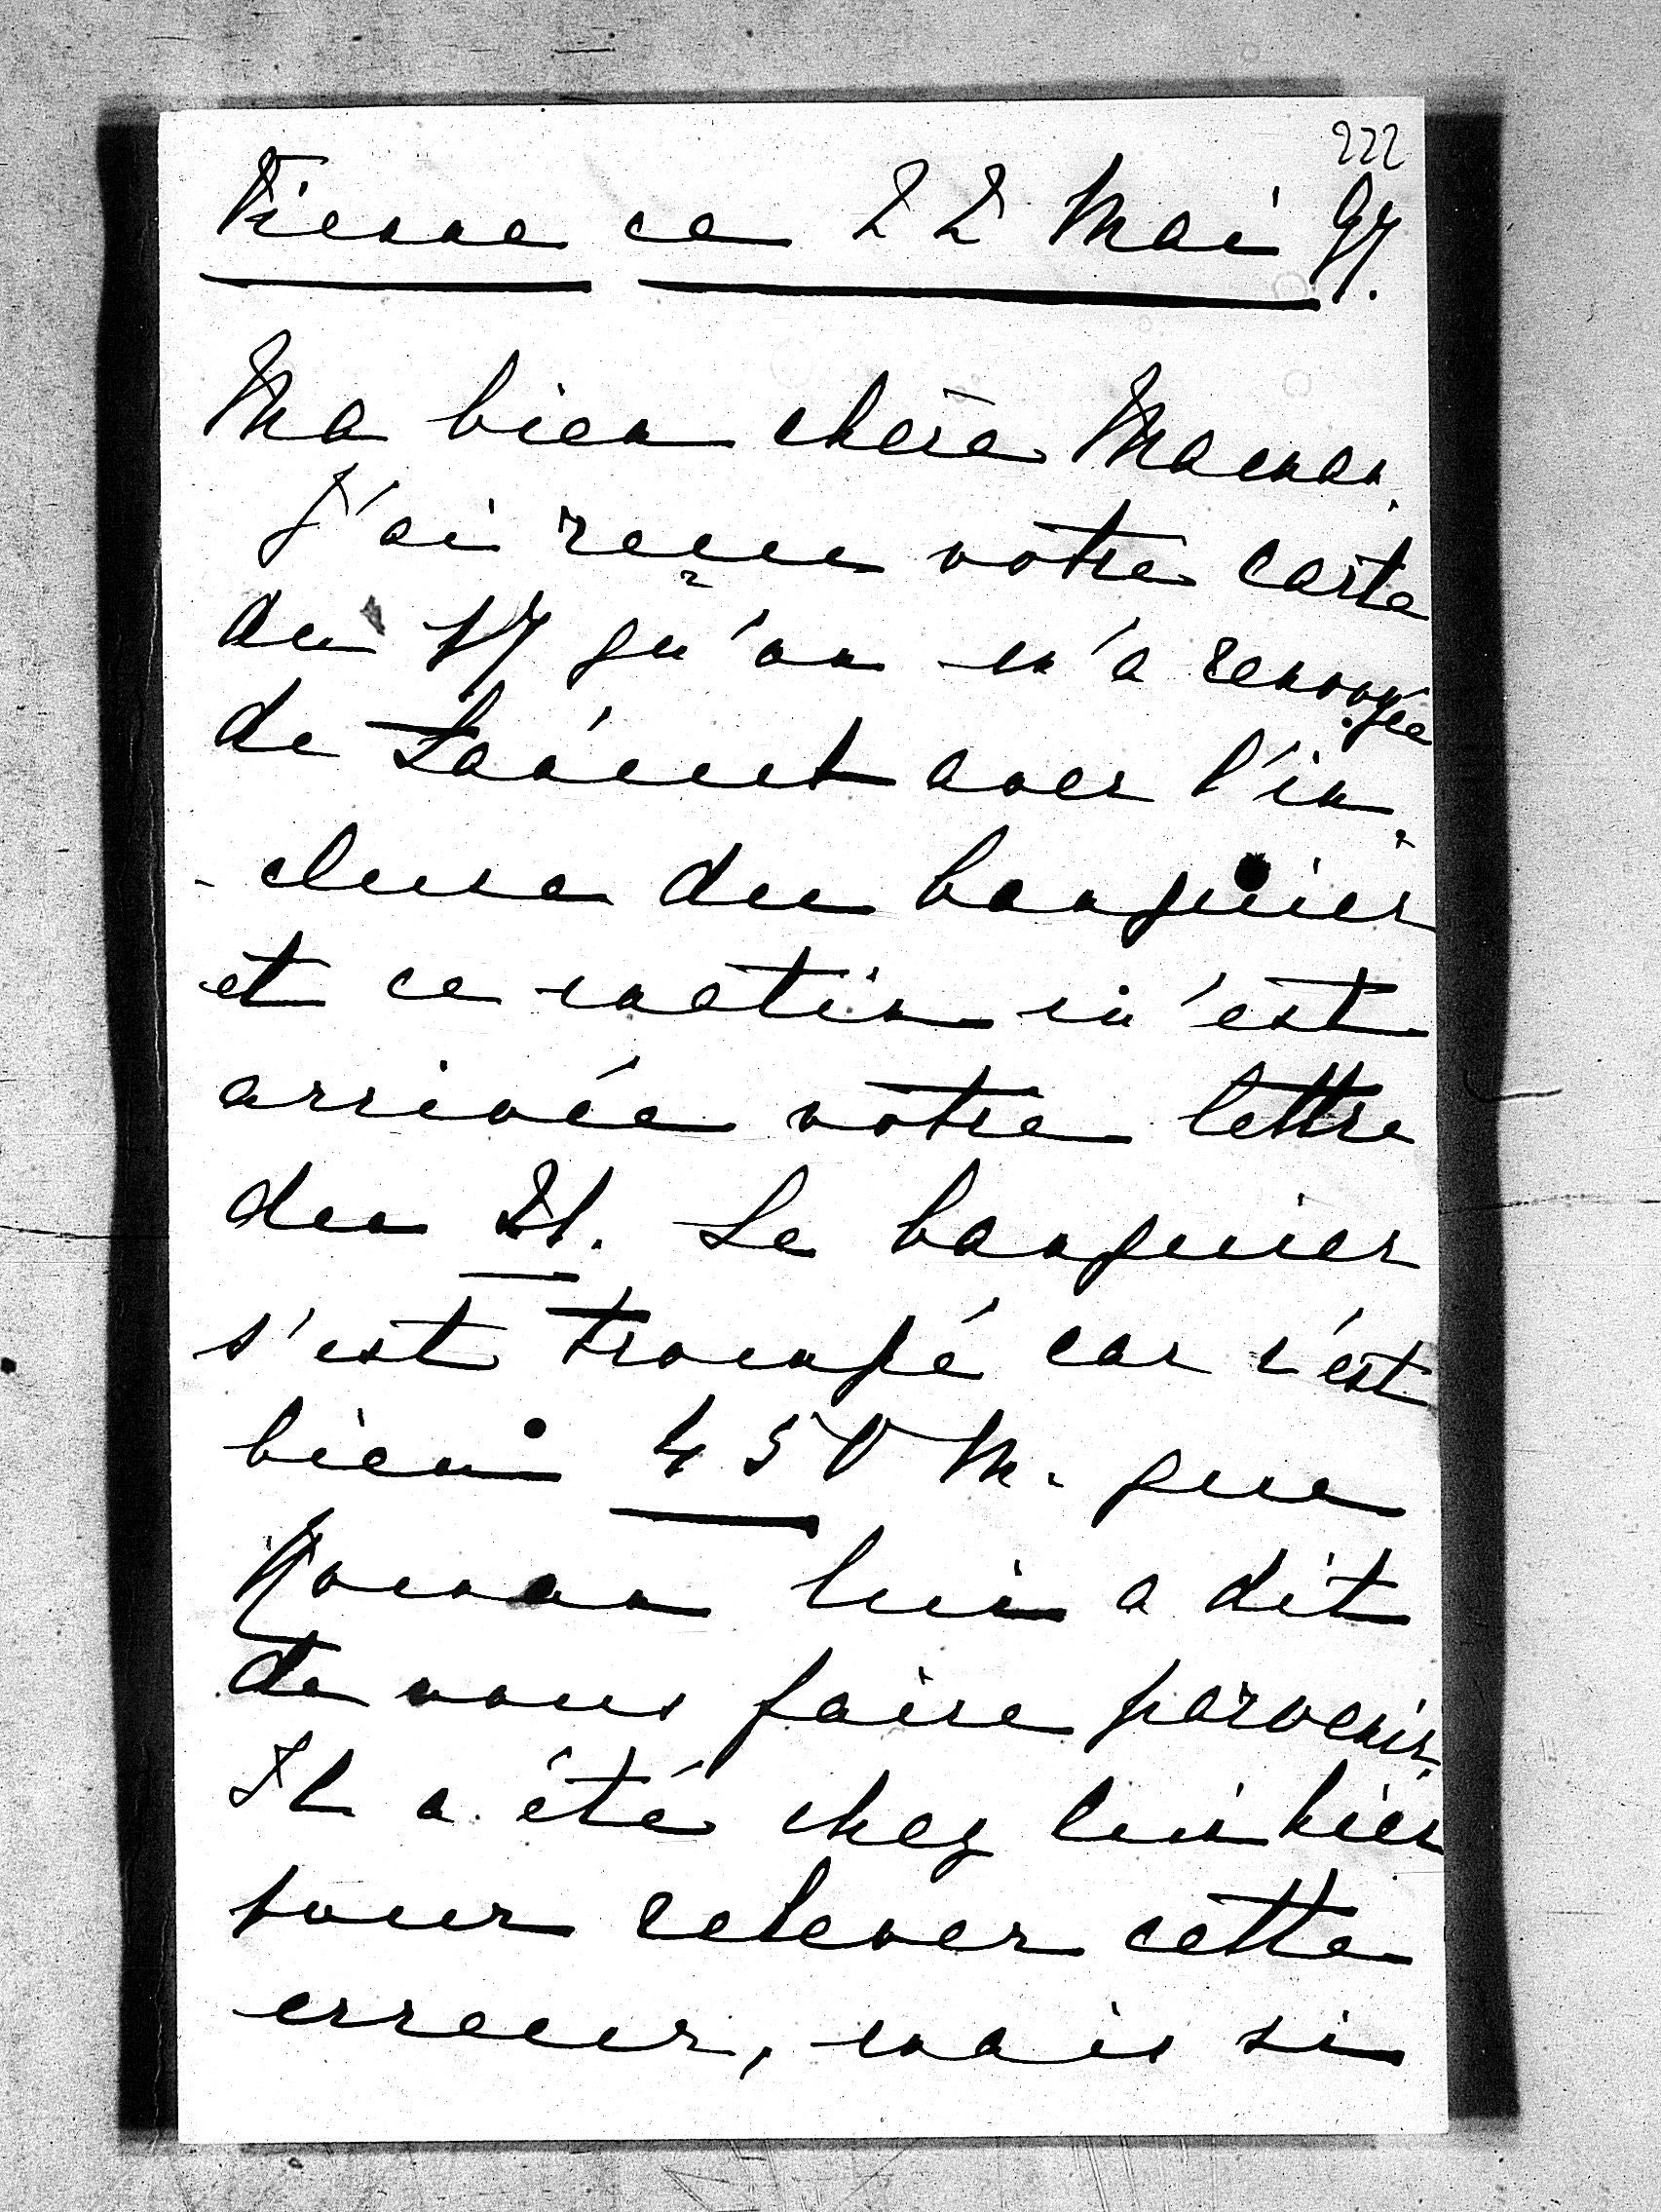 222
Vienne ce 22 Mai 97.
Ma bien chère Maman.
J'ai reçue votre carte
du 17 qu'on m'a renvoyée
de avec l'in-
-cluse du banquier
et ce matin m'est
arrivée votre lettre
du 21. Le banquier
s'est trompé car c'est
bien 450 M. que
lui a dit
de vous faire parvenir.
Il a été chez lui hier
pour relever cette
erreur, mais si